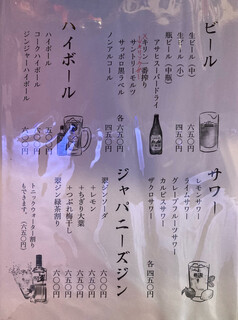 ビール
生ビール（中）
生ビール（小）
瓶ビール（中瓶）
アサヒスーパードライ
キリン一番搾り
サントリーモルツ
サッポロ黒ラベル
各 六五〇円
ノンアルコール
四五〇円
ハイボール
ハイボール
コークハイボール
ジンジャーハイボール
サワー
レモンサワー
ライムサワー
グレープフルーツサワー
カルピスサワー
ザクロサワー
各 四五〇円
ジャパニーズジン
翠ジンソーダ
＋レモン
＋ちぎり大葉
＋つぶれ梅干し
翠ジン緑茶割り
トニックウォーター割り
もできます。（六五〇円）